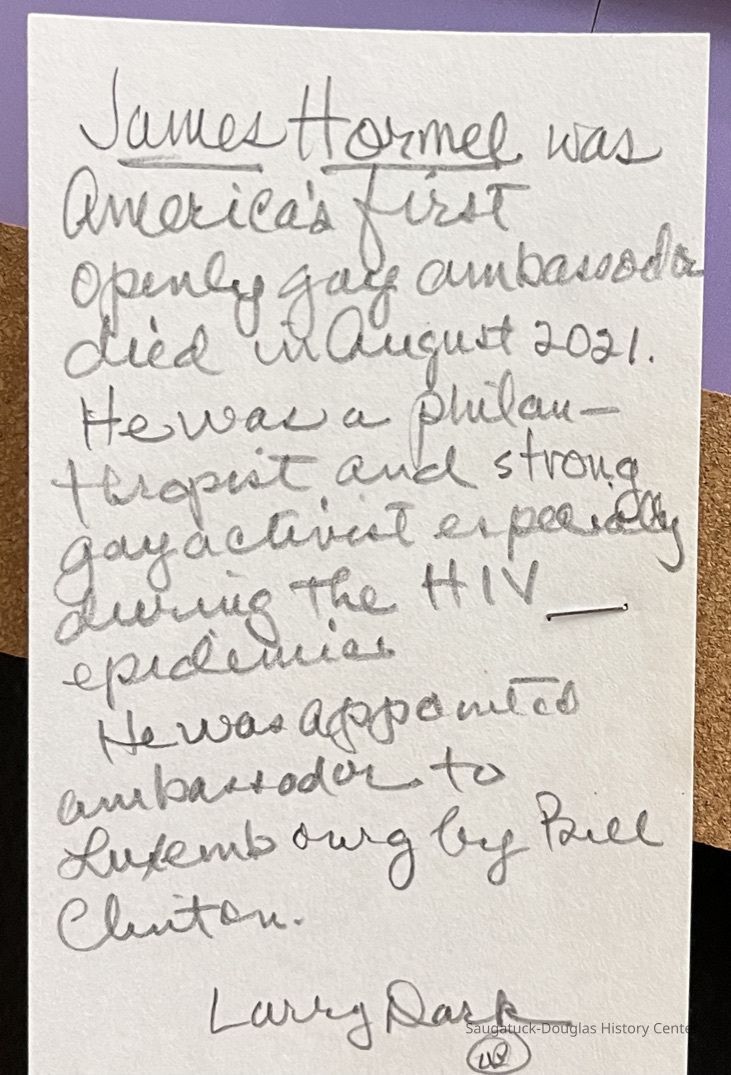 James Hormel was
America's first
openly gay ambassador
died in August 2021.
He was a philan-
thropist and strong
gay activist especially
during the HIV
epidemic
He was appointed
ambassador to
Luxembourg by Bill
Clinton.
Larry Dark
Saugatuck-Douglas History Cente